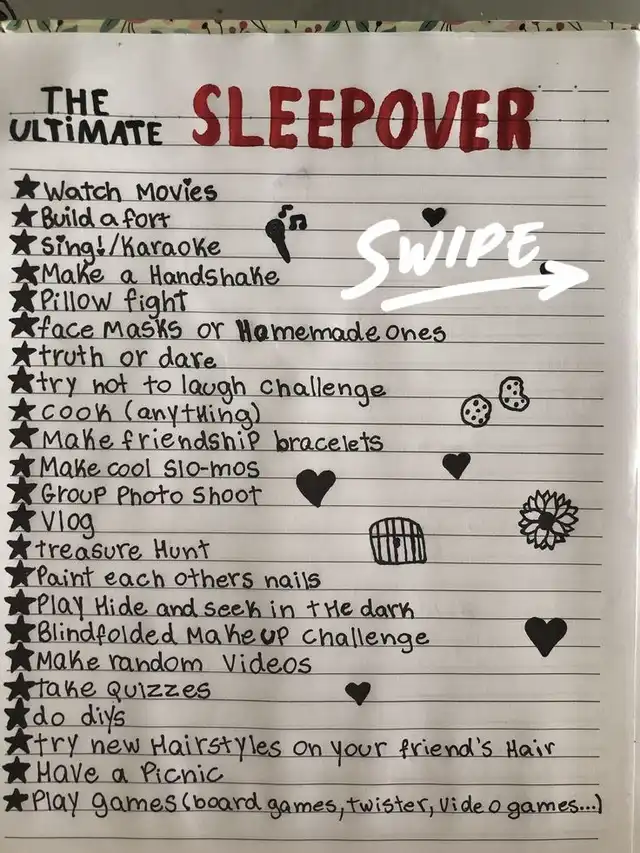 THE ULTIMATE SLEEPOVER
★ Watch Movies
★ Build a fort
★ Sing!/Karaoke
SWIPE
★ Make a Handshake
★ Pillow fight
★ face Masks or Homemade ones
★ truth or dare
★ try not to laugh challenge
★ cook (anytHing)
★ Make friendship bracelets
★ Make cool slo-mos
★ Group Photo Shoot
★ Vlog
★ treasure Hunt
★ Paint each others nails
★ Play Hide and seek in tHe dark
★ Blindfolded Makeup challenge
★ Make random Videos
★ take Quizzes
★ do diys
★ try new Hairstyles on your friend's Hair
★ Have a Picnic
★ Play games (board games, twister, video games...)